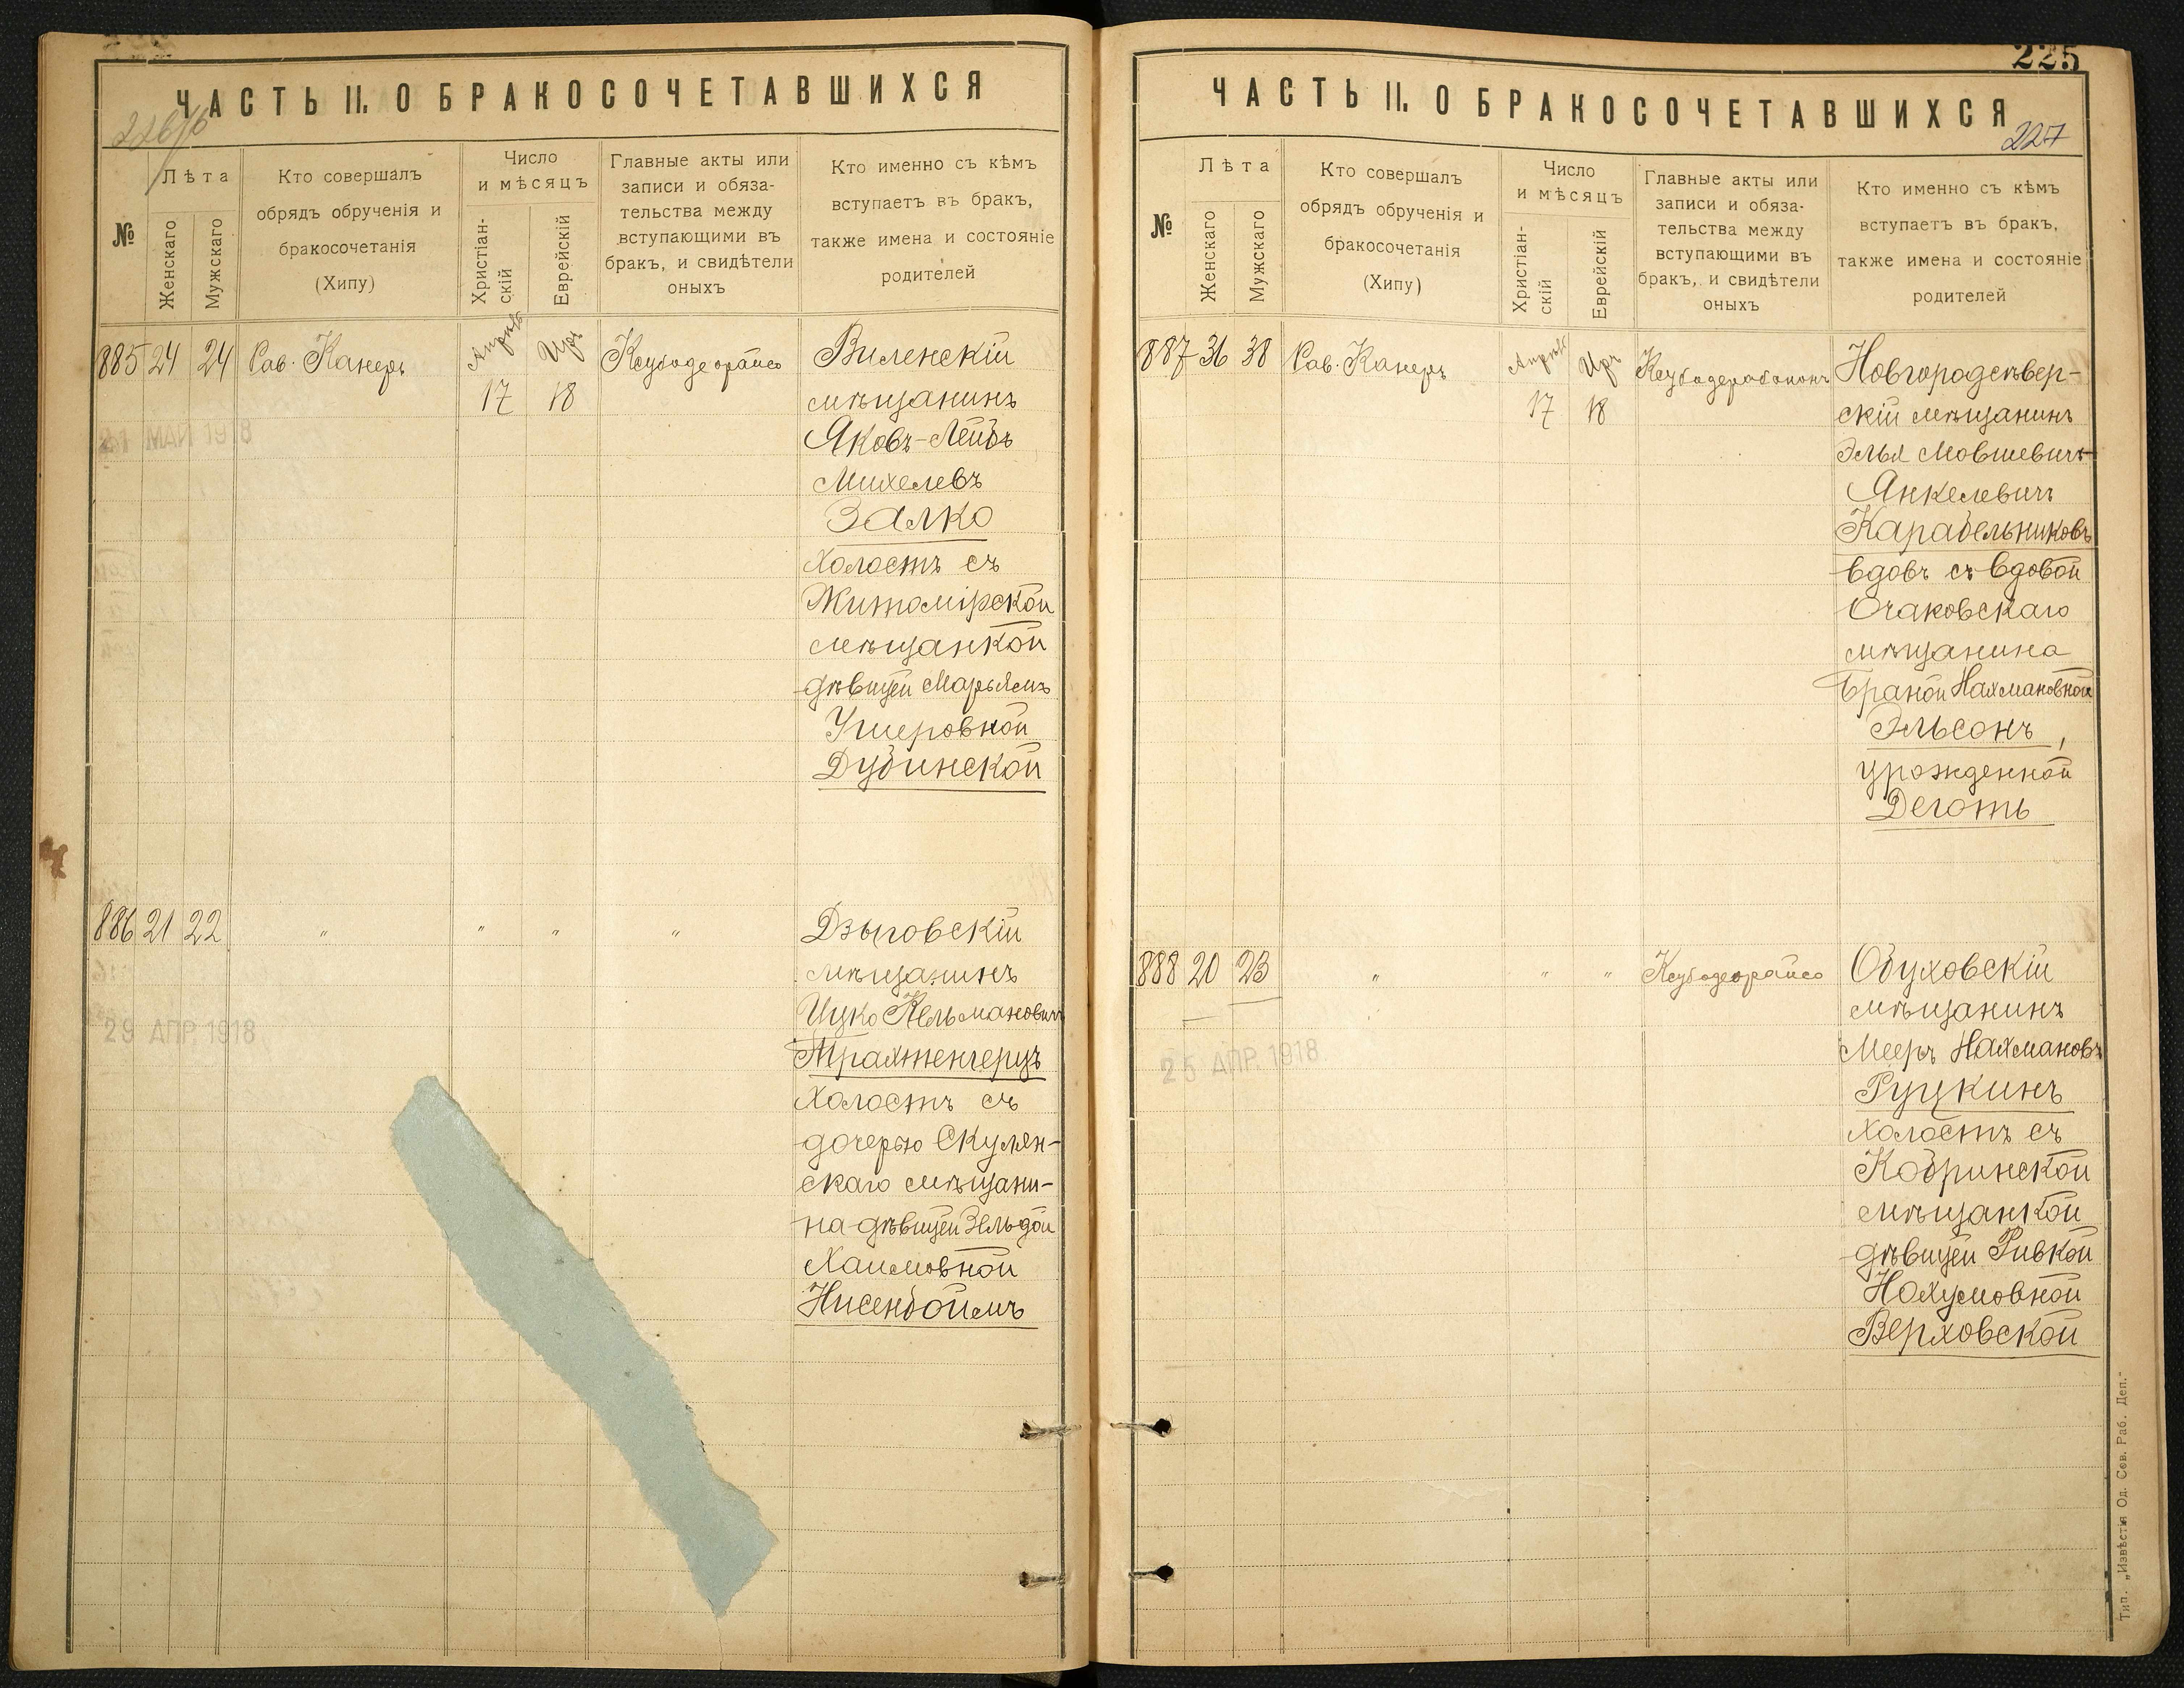 ЧАСТЬ II. О БРАКОСОЧЕТАВШИХСЯ
226/б
№
Лѣта
Женскаго
Мужскаго
Кто совершалъ
обрядъ обрученія и
бракосочетанія
(Хипу)
Число
и мѣсяцъ
Христіан-
скій
Еврейскій
Главные акты или
записи и обяза-
тельства между
вступающими въ
бракъ, и свидѣтели
оныхъ
Кто именно съ кѣмъ
вступаетъ въ бракъ,
также имена и состояніе
родителей
885 24 24 Рав. Канеръ Апрѣль Иръ Ксубадеорайсо Виленскій
17 18 мѣщанинъ
Яковъ-Лейбъ
МАЙ 1918
Михелевъ
Залко
холостъ съ
Житомірской
мѣщанкой
дѣвицей Марьямъ
Ушеровной
Дубинской
886 21 22 " " " " Дзыговскій
мѣщанинъ
Ицко Кельмановичъ
29 АПР. 1918
Трахтенгерцъ
холостъ съ
дочерью Скулян-
скаго мѣщани-
на дѣвицей Зельдой
Хаимовной
Нисенбоймъ
225
ЧАСТЬ II. О БРАКОСОЧЕТАВШИХСЯ
227
№
Лѣта
Женскаго
Мужскаго
Кто совершалъ
обрядъ обрученія и
бракосочетанія
(Хипу)
Число
и мѣсяцъ
Христіан-
скій
Еврейскій
Главные акты или
записи и обяза-
тельства между
вступающими въ
бракъ, и свидѣтели
оныхъ
Кто именно съ кѣмъ
вступаетъ въ бракъ,
также имена и состояніе
родителей
887 36 38 Рав. Канеръ Апрѣль Иръ Ксубадерабононъ Новгородсѣвер-
17 18 скій мѣщанинъ
Элья Мовшевичъ
Янкелевичъ
Карабельниковъ
вдовъ съ вдовой
Очаковскаго
мѣщанина
Браной Нахмановной
Эльсонъ,
урожденной
Деготь
888 20 23 " " " Ксубадеорайсо Обуховскій
мѣщанинъ
Мееръ Нахмановъ
25 АПР. 1918
Руцкинъ
холостъ съ
Кобринской
мѣщанкой
дѣвицей Ривкой
Нохумовной
Верховской
Тип. „Извѣстія Од. Сов. Раб. Деп."